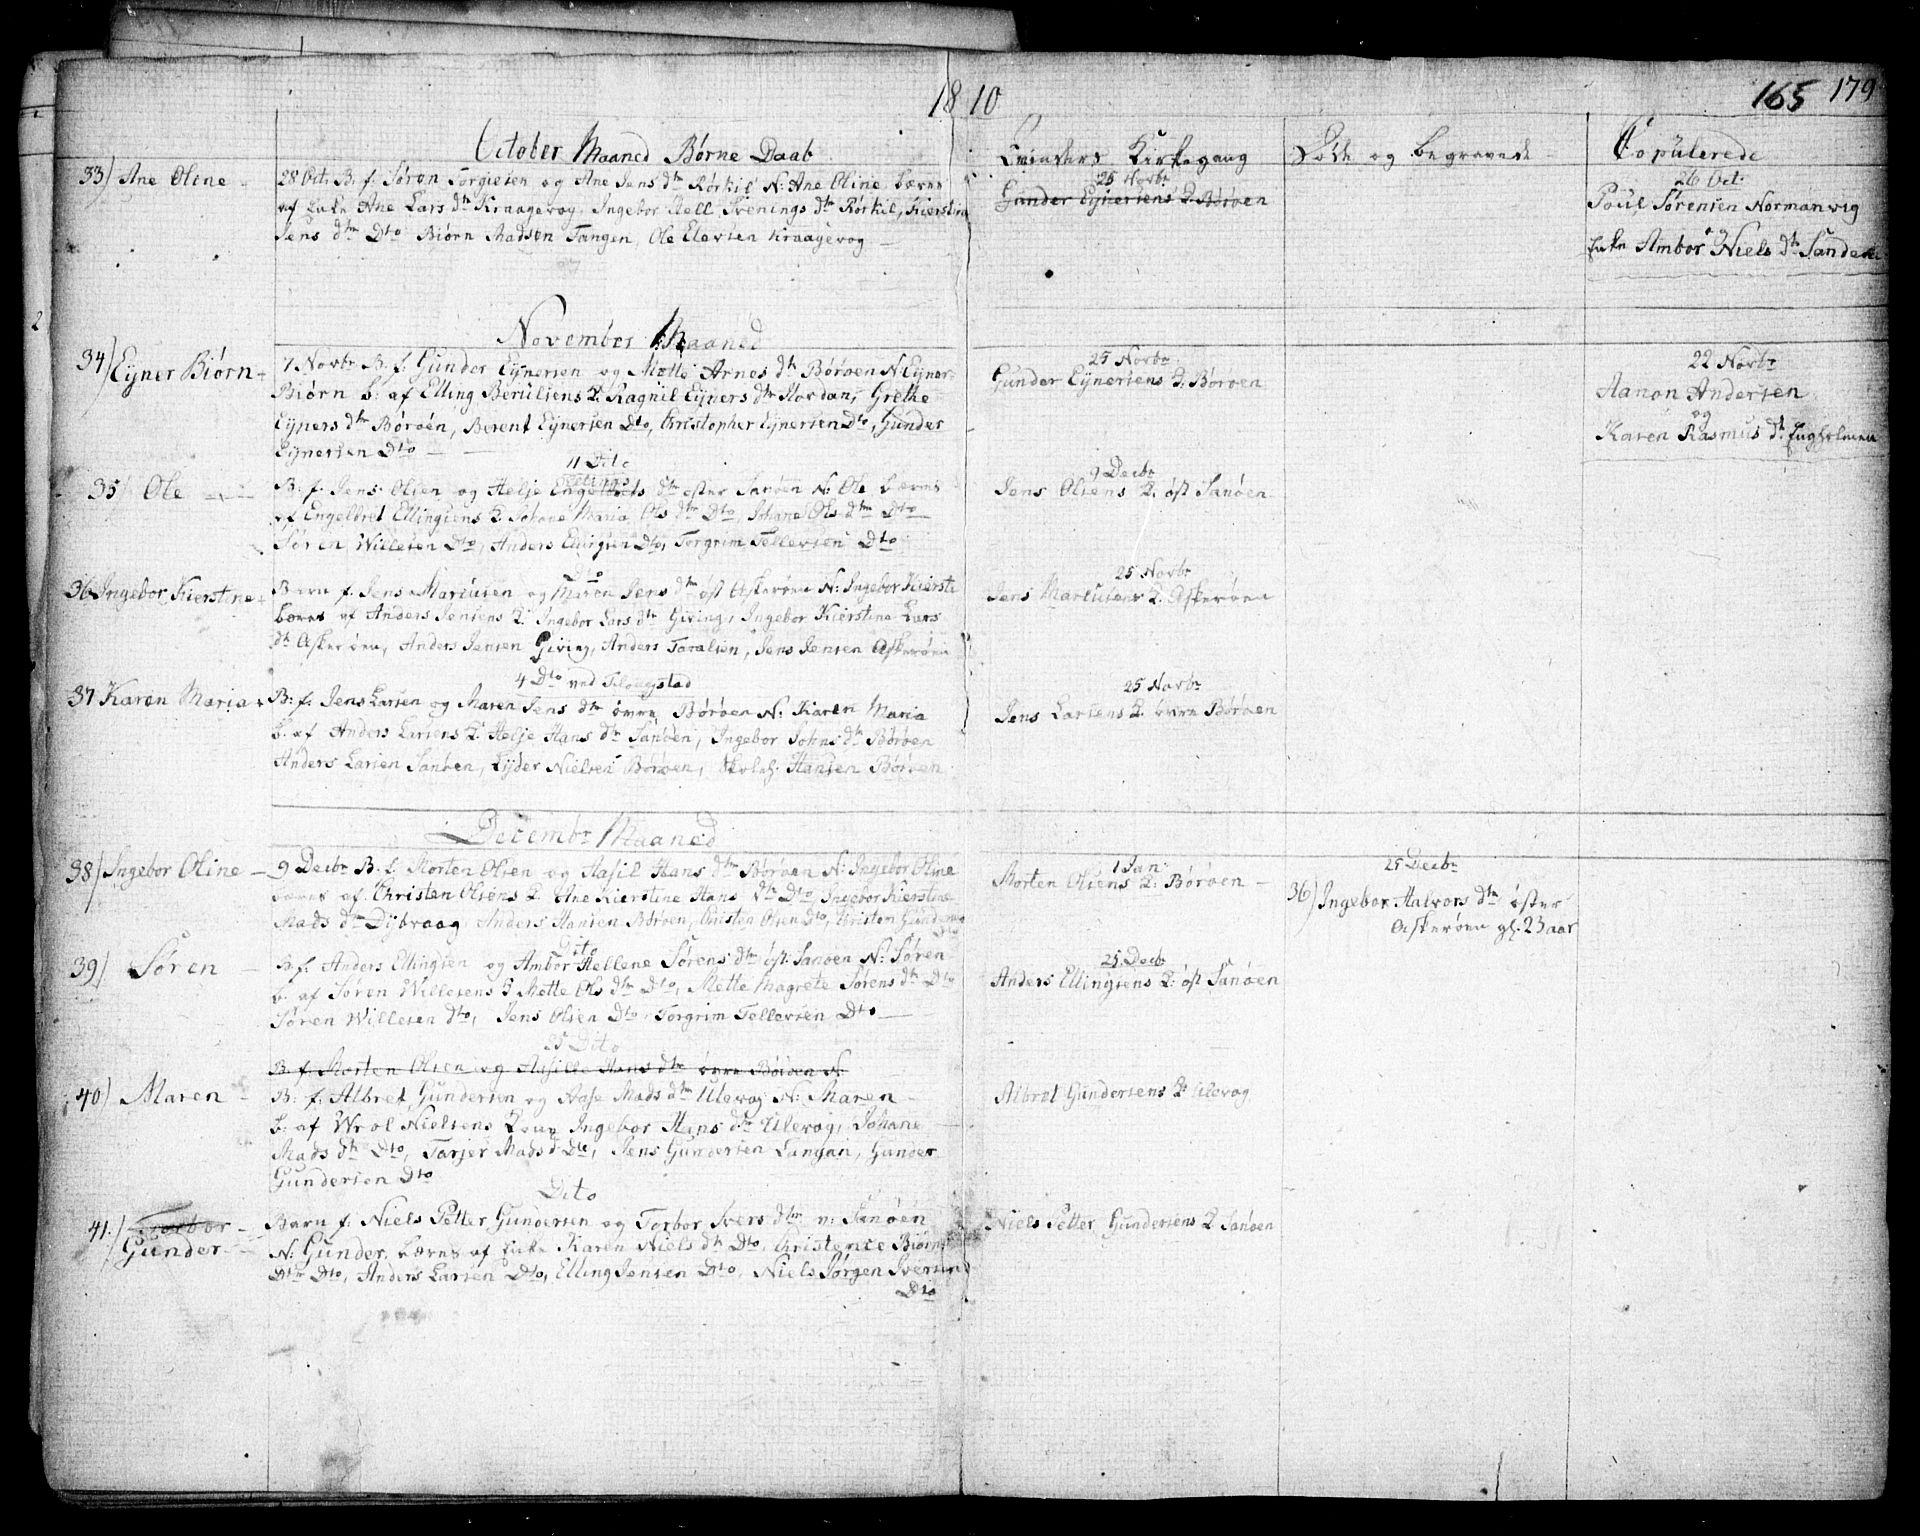 1810
165 179
October Maaned Børne Daab
Qvinders Kirkegang
Døde og begravede
Copulerede
33) Ane Oline
28 Oct. B. f. Søren Torgiesen og Ane Jens dtr Rørkil N: Ane Oline, bæres
af Enke Ane Lars dtr Kraagevog, Ingebor Hell Svenings dtr Rørkil, Kierstina
Jens dtr Dto Biørn Madsen Tangen, Ole Elevsen Kraagevog
25 Novbr
Gunder Eÿnersens K. Børøen
26 Oct.
Poul Sørensen Normanvig
og
Enke Ambor Niels dtr Sandøen
November Maaned
34) Eÿner Biørn
7 Novbr B. f. Gunder Eÿnersen og Mætte Arnes dtr Børøen N: Eÿner
Biørn b. af Elling Berulsens K. Ragnil Eÿners dtr Nordan, Grethe
Eÿners dtr Børøen, Berent Eÿnersen Dto, Christopher Eÿnersen Dto, Gunder
Eÿnersen Dto
25 Novbr
Gunder Eÿnersens K. Børøen
22 Novbr
Aanon Andersen
og
Karen Rasmus dtr Furholmen
11 Dito
35 Ole
Ellings
B. f. Jens Olsen og Helje Engelbrets dtr øster Sanøen N: Ole bæres
af Engelbret Ellingsens K. Johane Maria Ols dtr Dto, Johane Ols dtr Dto
Søren Willesen Dto, Anders Ellingsen Dto, Torgrim Tellevsen Dto
9 Decbr
Jens Olsens K. øst Sanøen
Dto
36 Ingebor Kierstine
Barn f. Jens Marcusen og Maren Jens dtr øst Askerøen N: Ingebor Kiersti
bæres af Anders Jensens K. Ingebor Lars dtr Giving, Ingebor Kierstine Lars
dtr Askerøen, Anders Jensen Giving, Anders Taralsen, Jens Jensen Askerøen
25 Novbr
Jens Marcusens K. Askerøen
4 Dto ved
37 Karen Maria
B. f. Jens Larsen og Maren Jens dtr øvre Børøen N: Karen Maria
b. af Anders Larsens K. Helje Hans dtr Sanøen, Ingebor Johns dtr Børøen
Anders Larsen Sanøen, Lÿder Nielsen Børøen, Hansen Børøen
25 Novbr
Jens Larsens K. øvre Børøen
Decembr Maaned
38) Ingebor Oline
9 Decbr B. f. Morten Olsen og Aasil Hans dtr Børøen N: Ingebor Oline
bæres af Christen Olsens K. Ane Kierstine Hans dtr Dto, Ingebor Kierstine
Mads dtr Dÿbvaag, Anders Hansen Børøen, Christen Olsen Dto, Christen Gunders
1 Jan
Morten Olsens K. Børøen
25 Decbr
36) Ingebor Halvors dtr øster
Askerøen gl. 23 aar
Dito
39) Søren
B. f. Anders Ellingsen og Ambor Hellene Sørens dtr øst. Sanøen N: Søren
b. af Søren Willesens K. Mette Ols dtr Dto, Mette Magrete Sørens dtr Dto
Søren Willesen Dto, Jens Olsen Dto Torgrim Tellevsen Dto
25 Decb
Anders Ellingsens K. øst Sanøen
25 Dito
B. f. Morten Olsen og Aasille Hans dtr øvre Børøen N:
40) Maren
B. f. Albret Gundersen og Aase Mads dtr Ulevog N: Maren
b. af Wrol Nielsens Kone Ingebor Hans dtr Ulevog, Johane
Mads dtr Dto, Tarjer Mads d Dto, Jens Gundersen Langan, Gunder
Gundersen Dto
Albret Gundersens K. Ulevog
Dito
41.) Torbor
Gunder
Barn f. Niels Petter Gundersen og Torbor Ivers dtr v: Sanøen
N: Gunder, bæres af Enke Karen Niels dtr Dto, Christence Biørns
Dtr Dto, Anders Larsen Dto, Elling Jensen Dto, Niels Jørgen Iversen
Dto
Niels Petter Gundersens K. Sanøen